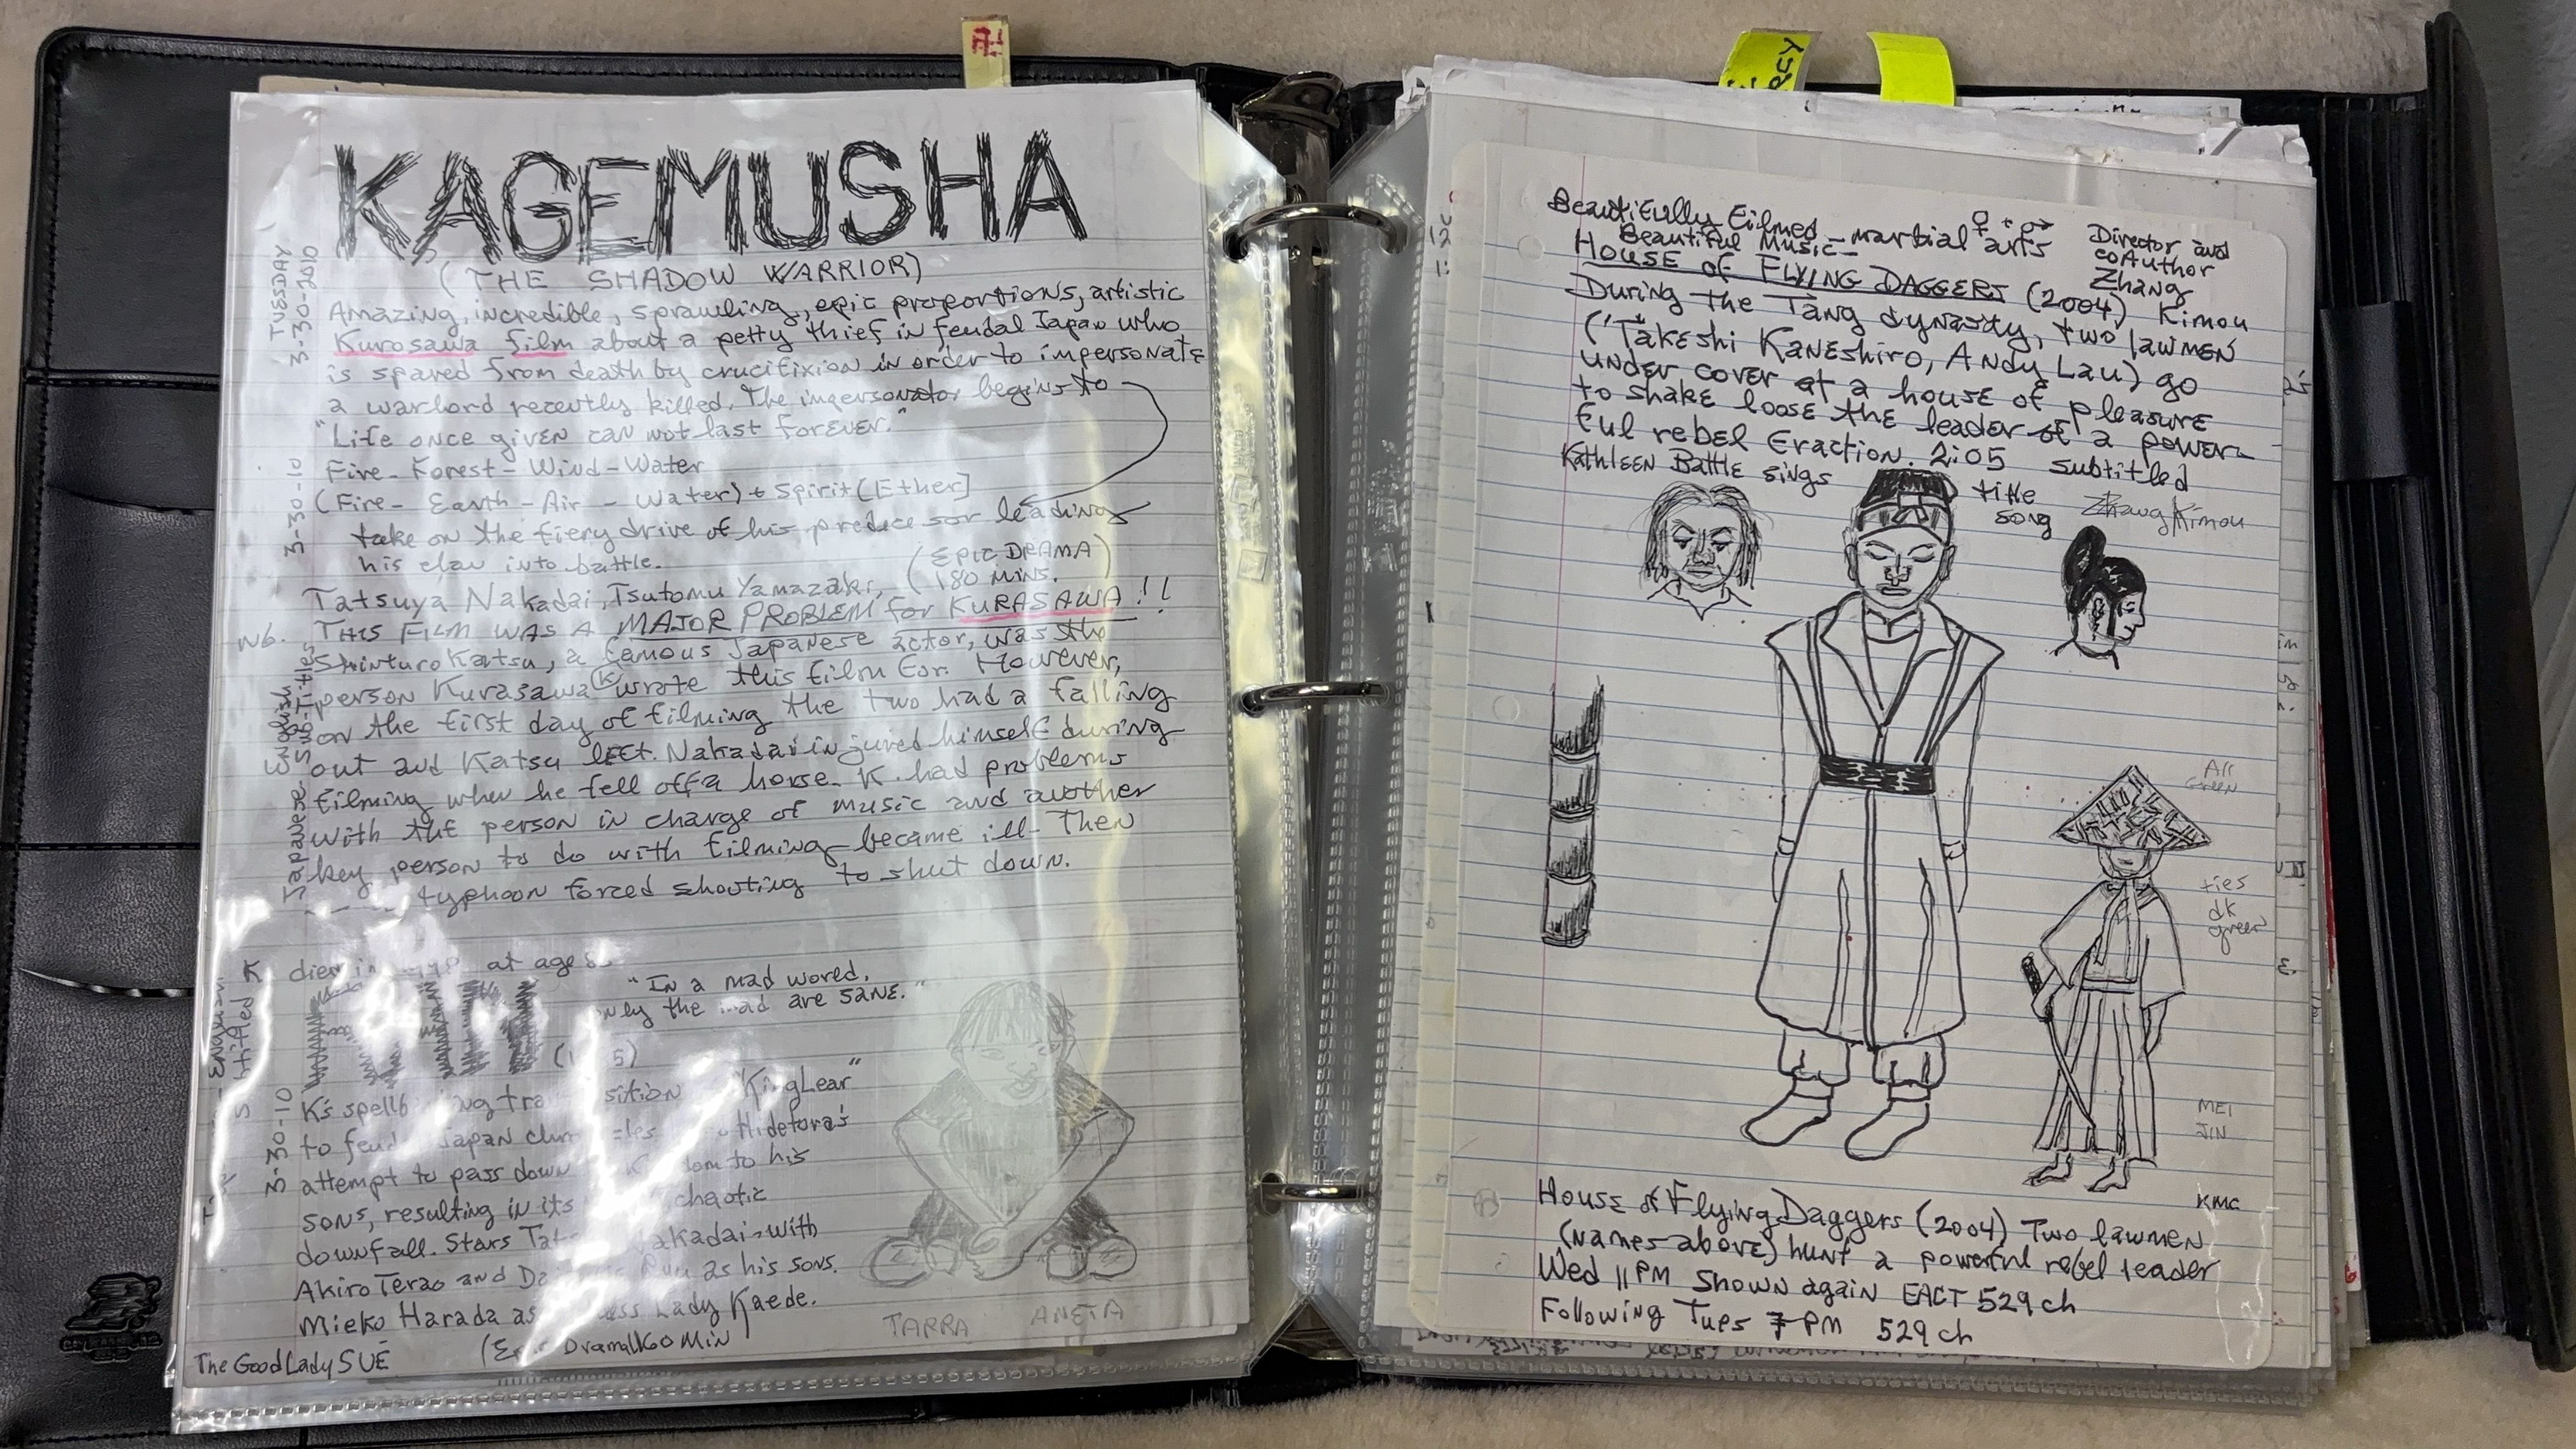 KAGEMUSHA
(THE SHADOW WARRIOR)
TUESDAY
3-30-2010
Amazing, incredible, sprawling, epic proportions, artistic
Kurosawa film about a petty thief in feudal Japan who
is spared from death by crucifixion in order to impersonate
a warlord recently killed. The impersonator begins to
"Life once given can not last forever."
Fire-Forest-Wind-Water
(Fire- Earth-Air - Water) + Spirit [Ether]
3-30-10
take on the fiery drive of his predecessor leading
his clan into battle.
(EPIC DRAMA
180 MINS.)
Tatsuya Nakadai, Tsutomu Yamazaki,
NB. THIS FILM WAS A MAJOR PROBLEM for KURASAWA!!
Shinturo Katsu, a famous Japanese actor, was the
person Kurasawa (K) wrote this film for. However,
on the first day of filming the two had a falling
out and Katsu left. Nakadai injured himself during
filming when he fell off a horse. K. had problems
with the person in charge of music and another
key person to do with filming became ill- Then
typhoon forced shooting to shut down.
Japanese - English
Sub-Titles
K died in at age
"In a mad wored,
only the mad are sane."
3-30-10
K's "King Lear"
to Japan Hidetora's
attempt to pass down to his
sons, resulting in its chaotic
downfall. Stars Nakadai-with
Akiro Terao and Ryu as his sons.
Mieko Harada as Lady Kaede.
Drama 160 Min
TARRA ANETA
The Good Lady SUE
Beautifully Filmed - martial arts ♀ + ♂
Beautiful Music-
Director and
coAuthor
Zhang
Kimou
House of Flying Daggers (2004)
During the Tang dynasty, two lawmen
(Takeshi Kaneshiro, Andy Lau) go
under cover at a house of pleasure
to shake loose the leader of a power-
ful rebel fraction. 2:05 subtitled
Kathleen Battle sings title
song
Zhang Kimou
All
Green
ties
dk
green
MEI
JIN
KMC
House of Flying Daggers (2004) Two lawmen
(names above) hunt a powerful rebel leader
Wed 11 PM Shown again EACT 529 ch
Following Tues 7 PM 529 ch